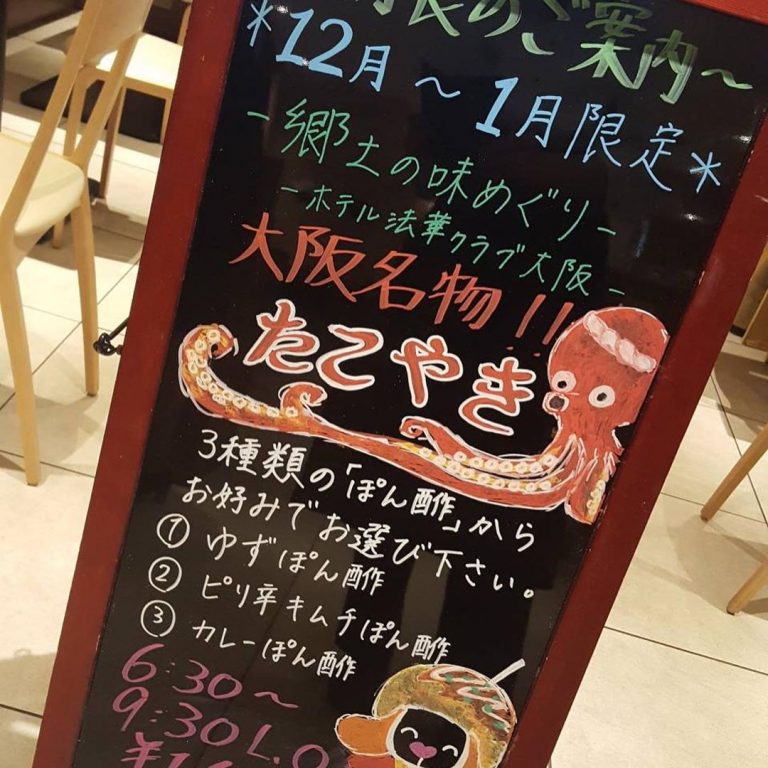 のご案内〜
*12月〜1月限定*
-郷土の味めぐり-
-ホテル法華クラブ大阪-
大阪名物!!
たこやき
3種類の「ぽん酢」から
お好みでお選び下さい。
① ゆずぽん酢
② ピリ辛キムチぽん酢
③ カレーぽん酢
6:30〜
9:30 L.O